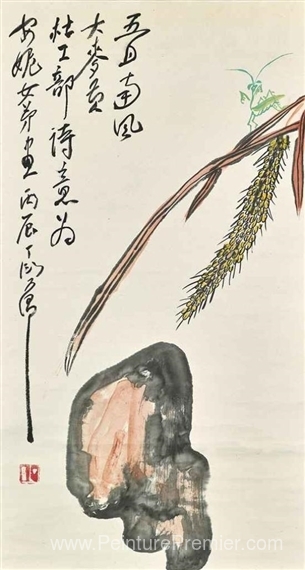 五月南風
大麥黃
杜工部詩意為
安妮女弟畫 丙辰丁衍庸
www.PeinturePremier.com